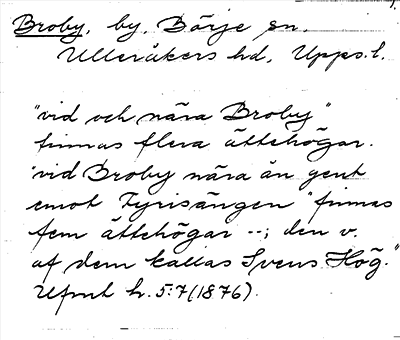 Broby, by, Börje sn.
Ulleråkers hd, Upps. l.
"vid och nära Broby"
finnas flera ättehögar.
"vid Broby nära ån gent
emot Fyrisängen" finnas
fem ättehögar --; den v.
af dem kallas Svens Hög."
Ufmt h. 5:7 (1876).